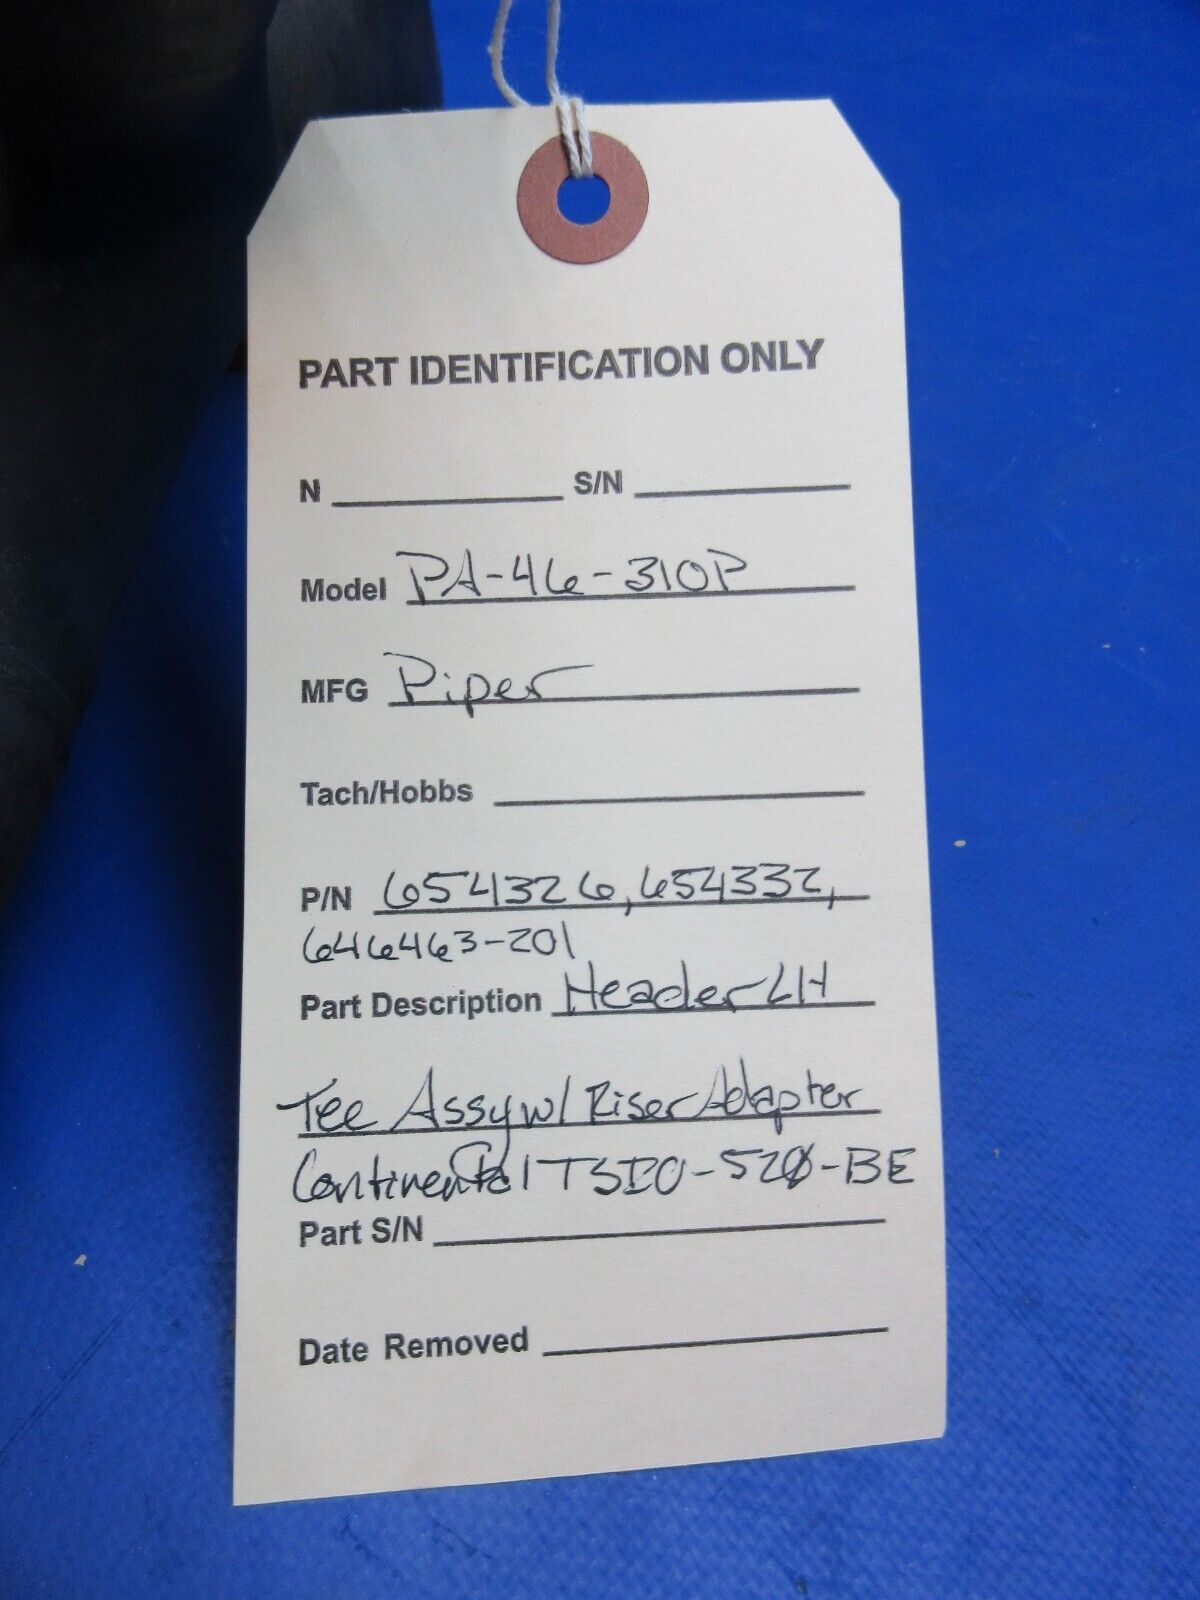 PART IDENTIFICATION ONLY
N S/N
Model PA-46-310P
MFG Piper
Tach/Hobbs
P/N 654326, 654332,
646463-201
Part Description Header LH
Tee Assy w/ Riser Adapter
Continental TSIO-520-BE
Part S/N
Date Removed